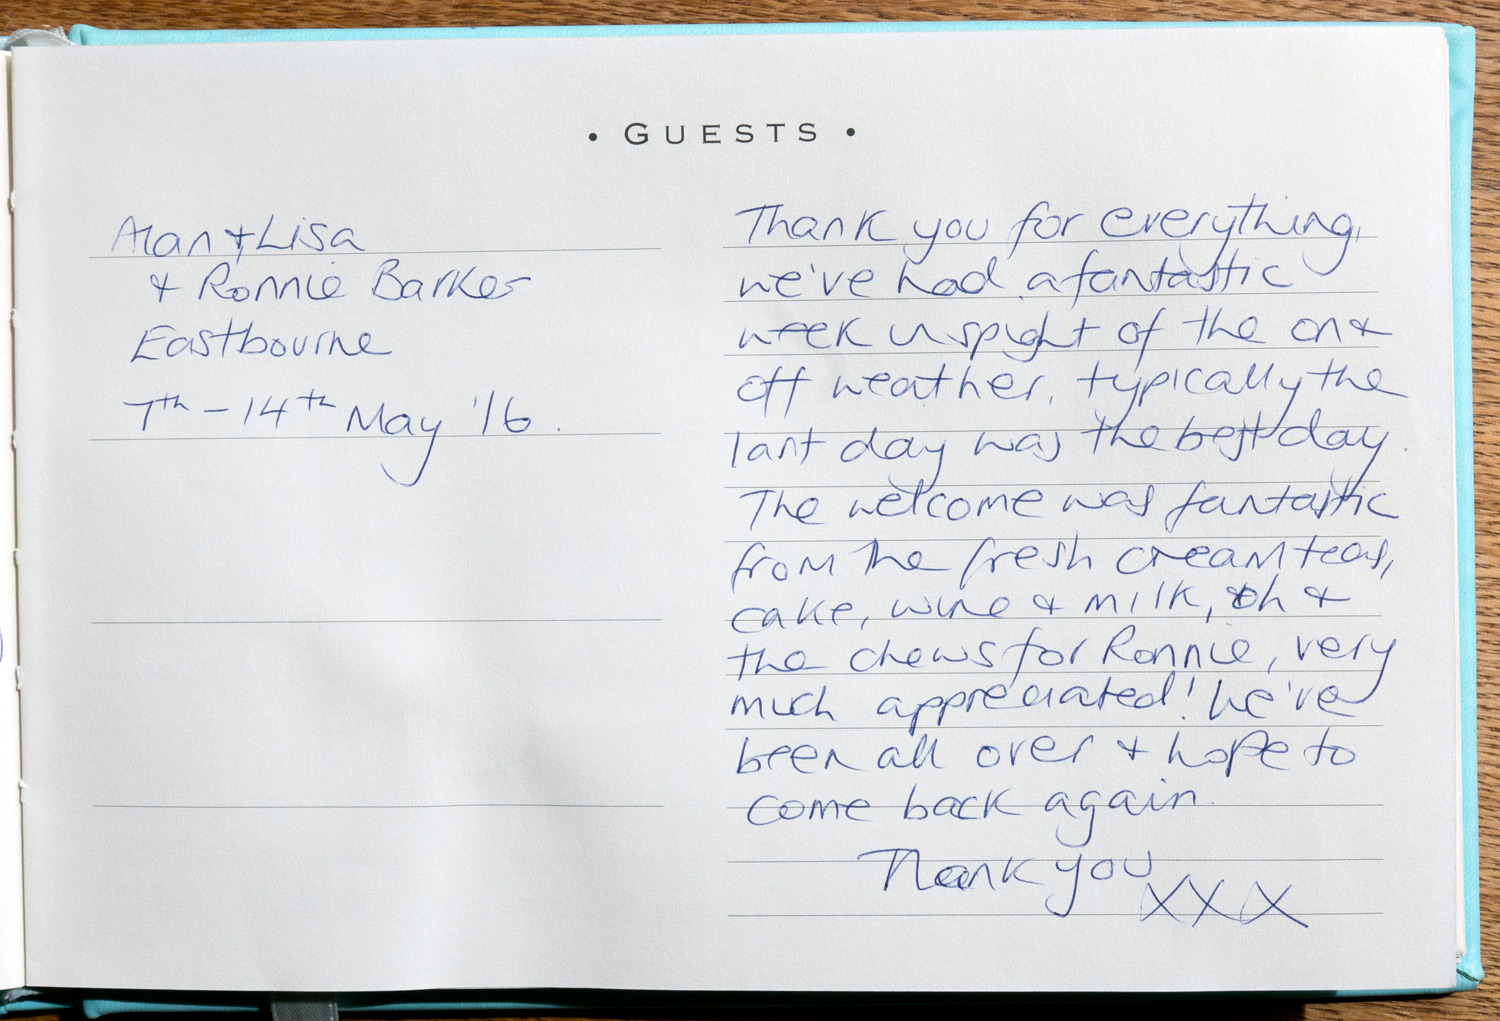 • GUESTS •
Alan & Lisa
& Ronnie Barker
Eastbourne
7th - 14th May '16.
Thank you for everything,
we've had a fantastic
week inspight of the on &
off weather, typically the
last day was the best day.
The welcome was fantastic
from the fresh cream teas,
cake, wine & milk, oh &
the chews for Ronnie, very
much appreciated! We've
been all over & hope to
come back again.
Thank you
XXX